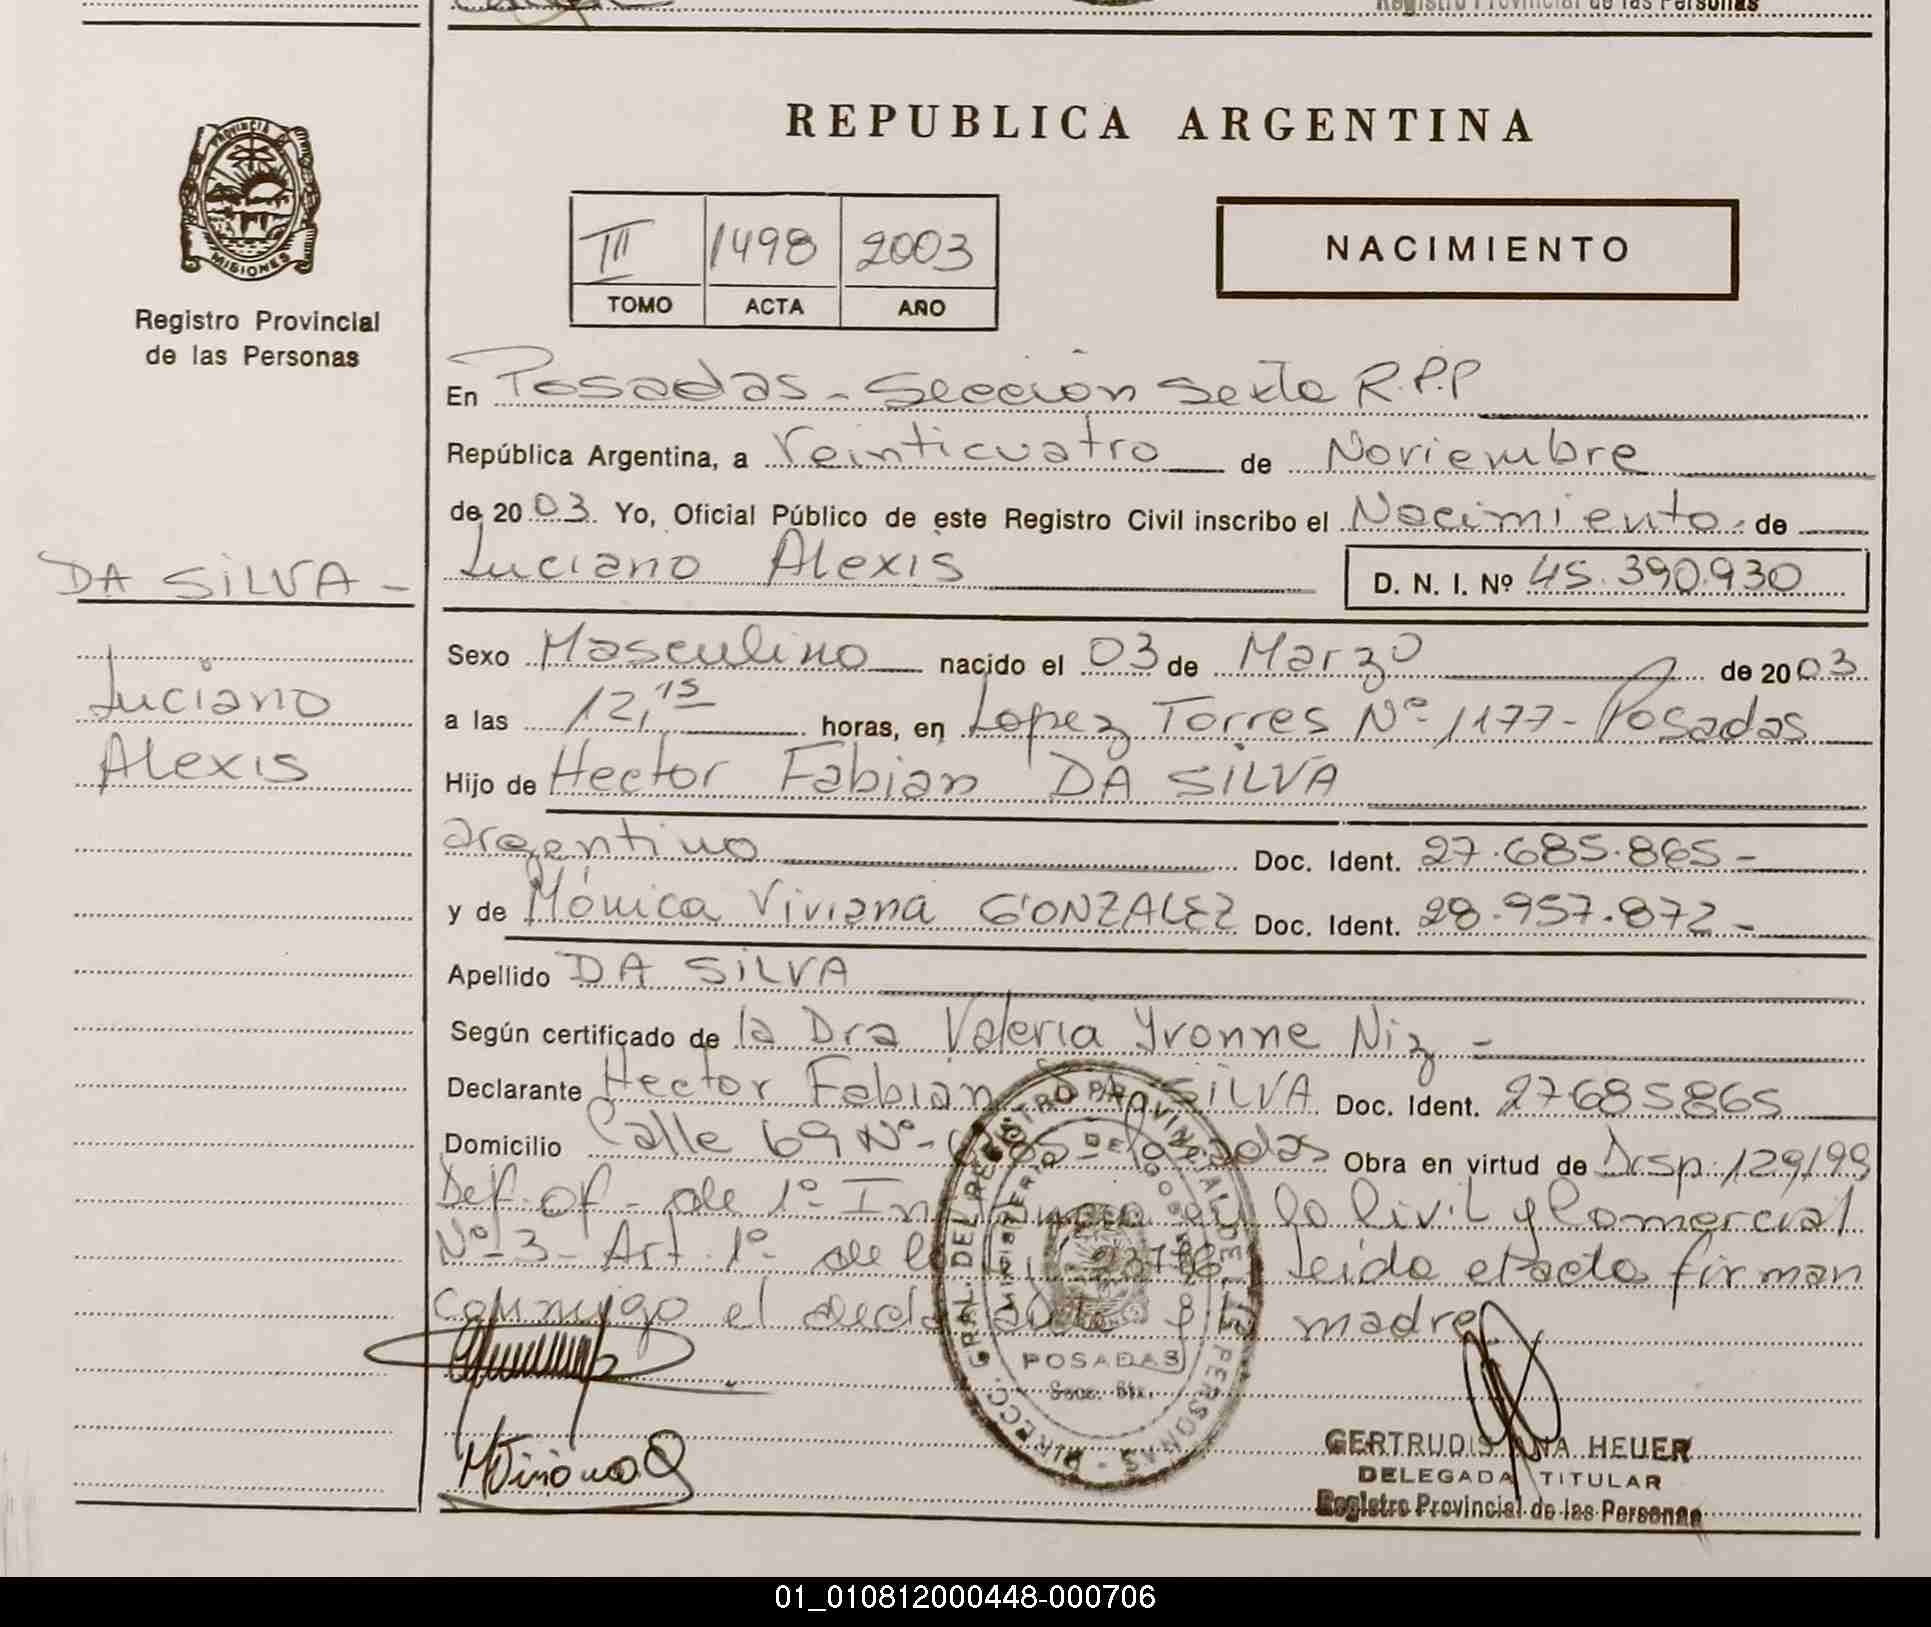 Registro Provincial de las Personas
PROVINCIA DE
MISIONES
Registro Provincial
de las Personas
REPUBLICA ARGENTINA
III 1498 2003
TOMO ACTA AÑO
NACIMIENTO
En Posadas - Sección Sexta R.P.P
República Argentina, a Veinticuatro de Noviembre
de 2003. Yo, Oficial Público de este Registro Civil inscribo el Nacimiento de
Luciano Alexis
D. N. I. Nº 45.390.930
DA SILVA -
Luciano
Alexis
Sexo Masculino nacido el 03 de Marzo de 2003
a las 12,15 horas, en Lopez Torres Nº 1177 - Posadas
Hijo de Hector Fabian DA SILVA
argentino Doc. Ident. 27.685.865 -
y de Mónica Viviana GONZALEZ Doc. Ident. 28.957.872 -
Apellido DA SILVA
Según certificado de la Dra Valeria Yvonne Niz -
Declarante Hector Fabian DA SILVA Doc. Ident. 27685865
Domicilio Calle 69 Nº Posadas Obra en virtud de Disp. 129/99
Def. of - de 1º Instancia en lo Civil y Comercial
Nº 3 - Art. 1º de leida el acta firman
conmigo el declarante y la madre
DIRECC. GRAL. DEL REGISTRO PROVINCIAL DE LAS PERSONAS
MINISTERIO DE GOBIERNO
POSADAS
Secc. 6ta.
GERTRUDIS ANA HEUER
DELEGADA TITULAR
Registro Provincial de las Personas
01_010812000448-000706